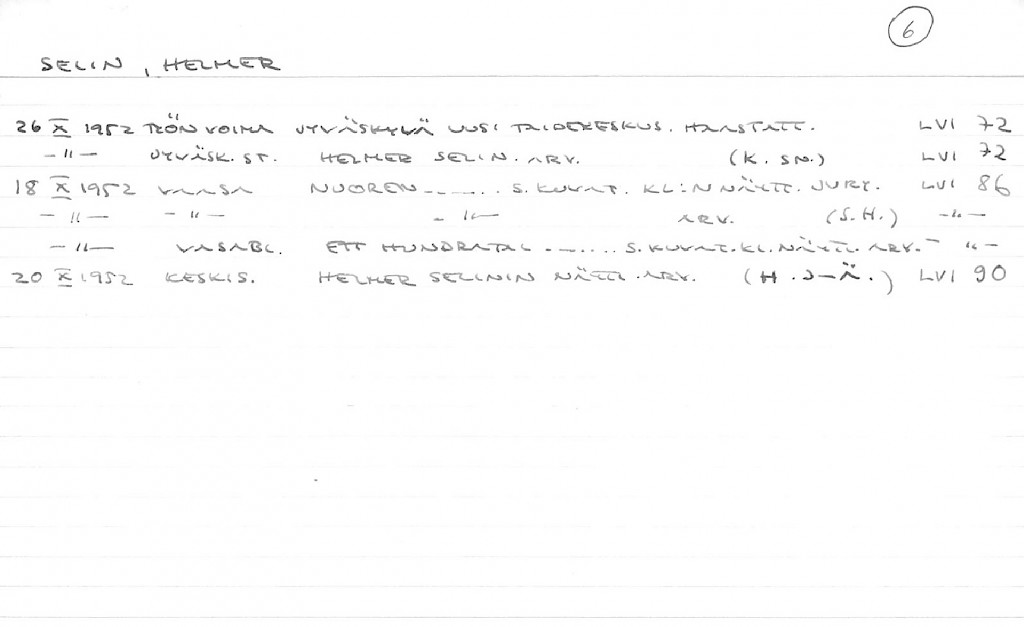 6
SELIN, HELMER
26 X 1952 TYÖN VOIMA JYVÄSKYLÄ UUSI TAIDEKESKUS. HAASTATT. LVI 72
-"- JYVÄSK. ST. HELMER SELIN. ARV. (K. SN.) LVI 72
18 X 1952 VAASA NUOREN ....... S. KUVAT. KL:N NÄYTT. JURY. LVI 86
-"- -"- -"- ARV. (S.H.) -"-
-"- VASABL. ETT HUNDRATAL ....... S. KUVAT. KL. NÄYTT. ARV. -"-
20 X 1952 KESKIS. HELMER SELININ NÄYTT. ARV. (H. J-Ä.) LVI 90